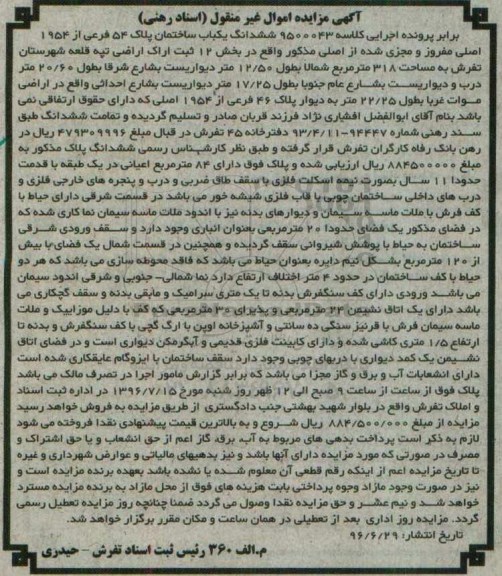 آگهی مزایده اموال غیر منقول (اسناد رهنی)
برابر پرونده اجرایی کلاسه ۹۵۰۰۰۴۳ ششدانگ یکباب ساختمان پلاک ۵۴ فرعی از ۱۹۵۴
اصلی مفروز و مجزی شده از اصلی مذکور واقع در بخش ۱۲ ثبت اراک اراضی تپه قلعه شهرستان
تفرش به مساحت ۳۱۸ مترمربع شمالا بطول ۱۲/۵۰ متر دیواریست بشارع شرقا بطول ۲۰/۶۰ متر
درب و دیواریست بشارع عام جنوبا بطول ۱۷/۲۵ متر دیواریست بشارع احداثی واقع در اراضی
موات غربا بطول ۲۲/۲۵ متر به دیوار پلاک ۴۶ فرعی از ۱۹۵۴ اصلی که دارای حقوق ارتفاقی نمی
باشد بنام آقای ابوالفضل افشاری نژاد فرزند قربان صادر و تسلیم گردیده و تمامت ششدانگ طبق
سند رهنی شماره ۹۴۴۴۷-۹۳/۴/۱۱ دفترخانه ۴۵ تفرش در قبال مبلغ ۴۷۹۳۰۹۹۹۶ ریال در
رهن بانک رفاه کارگران تفرش قرار گرفته و طبق نظر کارشناس رسمی ششدانگ پلاک مذکور به
مبلغ ۸۸۴۵۰۰۰۰۰ ریال ارزیابی شده و پلاک فوق دارای ۸۴ مترمربع اعیانی در یک طبقه با قدمت
حدودا ۱۱ سال بصورت نیمه اسکلت فلزی با سقف طاق ضربی و درب و پنجره های خارجی فلزی و
درب های داخلی ساختمان چوبی با قاب فلزی شیشه خور می باشد در قسمت شرقی دارای حیاط با
کف فرش با ملات ماسه سیمان و دیوارهای بدنه نیز با اندود ملات ماسه سیمان نما کاری شده که
در فضای مذکور یک فضای حدودا ۲۰ مترمربعی بعنوان انباری وجود دارد و سقف ورودی شرقی
ساختمان به حیاط با پوشش شیروانی سقف گردیده و همچنین در قسمت شمال یک فضای با بیش
از ۱۲۰ مترمربع بشکل نیم دایره بعنوان حیاط می باشد که فاقد محوطه سازی می باشد که هر دو
حیاط با کف ساختمان در حدود ۴ متر اختلاف ارتفاع دارد نما شمالی- جنوبی و شرقی اندود سیمان
می باشد ورودی دارای کف سنگفرش بدنه تا یک متری سرامیک و مابقی بدنه و سقف گچکاری می
باشد دارای یک اتاق نشیمن ۲۴ مترمربعی و پذیرای ۳۰ مترمربعی که کف با دلیل موزاییک و ملات
ماسه سیمان فرش با قرنیز سنگی ده سانتی و آشپزخانه اوپن با ارگ گچی با کف سنگفرش و بدنه تا
ارتفاع ۱/۵ متری کاشی شده و دارای کابینت فلزی قدیمی و آبگرمکن دیواری است و در فضای اتاق
نشیمن یک کمد دیواری با دربهای چوبی وجود دارد سقف ساختمان با ایزوگام عایقکاری شده است
دارای انشعابات آب و برق و گاز مجزا می باشد که برابر گزارش مامور اجرا در تصرف مالک می باشد
پلاک فوق از ساعت از ساعت ۹ صبح الی ۱۲ ظهر روز شنبه مورخ ۱۳۹۶/۷/۱۵ در اداره ثبت اسناد
و املاک تفرش واقع در بلوار شهید بهشتی جنب دادگستری از طریق مزایده به فروش خواهد رسید
مزایده از مبلغ ۸۸۴/۵۰۰/۰۰۰ ریال شروع و به بالاترین قیمت پیشنهادی نقدا فروخته می شود
لازم به ذکر است پرداخت بدهی های مربوط به آب، برق، گاز اعم از حق انشعاب و یا حق اشتراک و
مصرف در صورتی که مورد مزایده دارای آنها باشد و نیز بدهیهای مالیاتی و عوارض شهرداری و غیره
تا تاریخ مزایده اعم از اینکه رقم قطعی آن معلوم شده یا نشده باشد بعهده برنده مزایده است و
نیز در صورت وجود مازاد وجوه پرداختی بابت هزینه های فوق از محل مازاد به برنده مزایده مسترد
خواهد شد و نیم عشر و حق مزایده نقدا وصول می گردد ضمنا چنانچه روز مزایده تعطیل رسمی
گردد، مزایده روز اداری بعد از تعطیلی در همان ساعت و مکان مقرر برگزار خواهد شد.
تاریخ انتشار: ۹۶/۶/۲۹
م.الف ۳۶۰ رئیس ثبت اسناد تفرش - حیدری